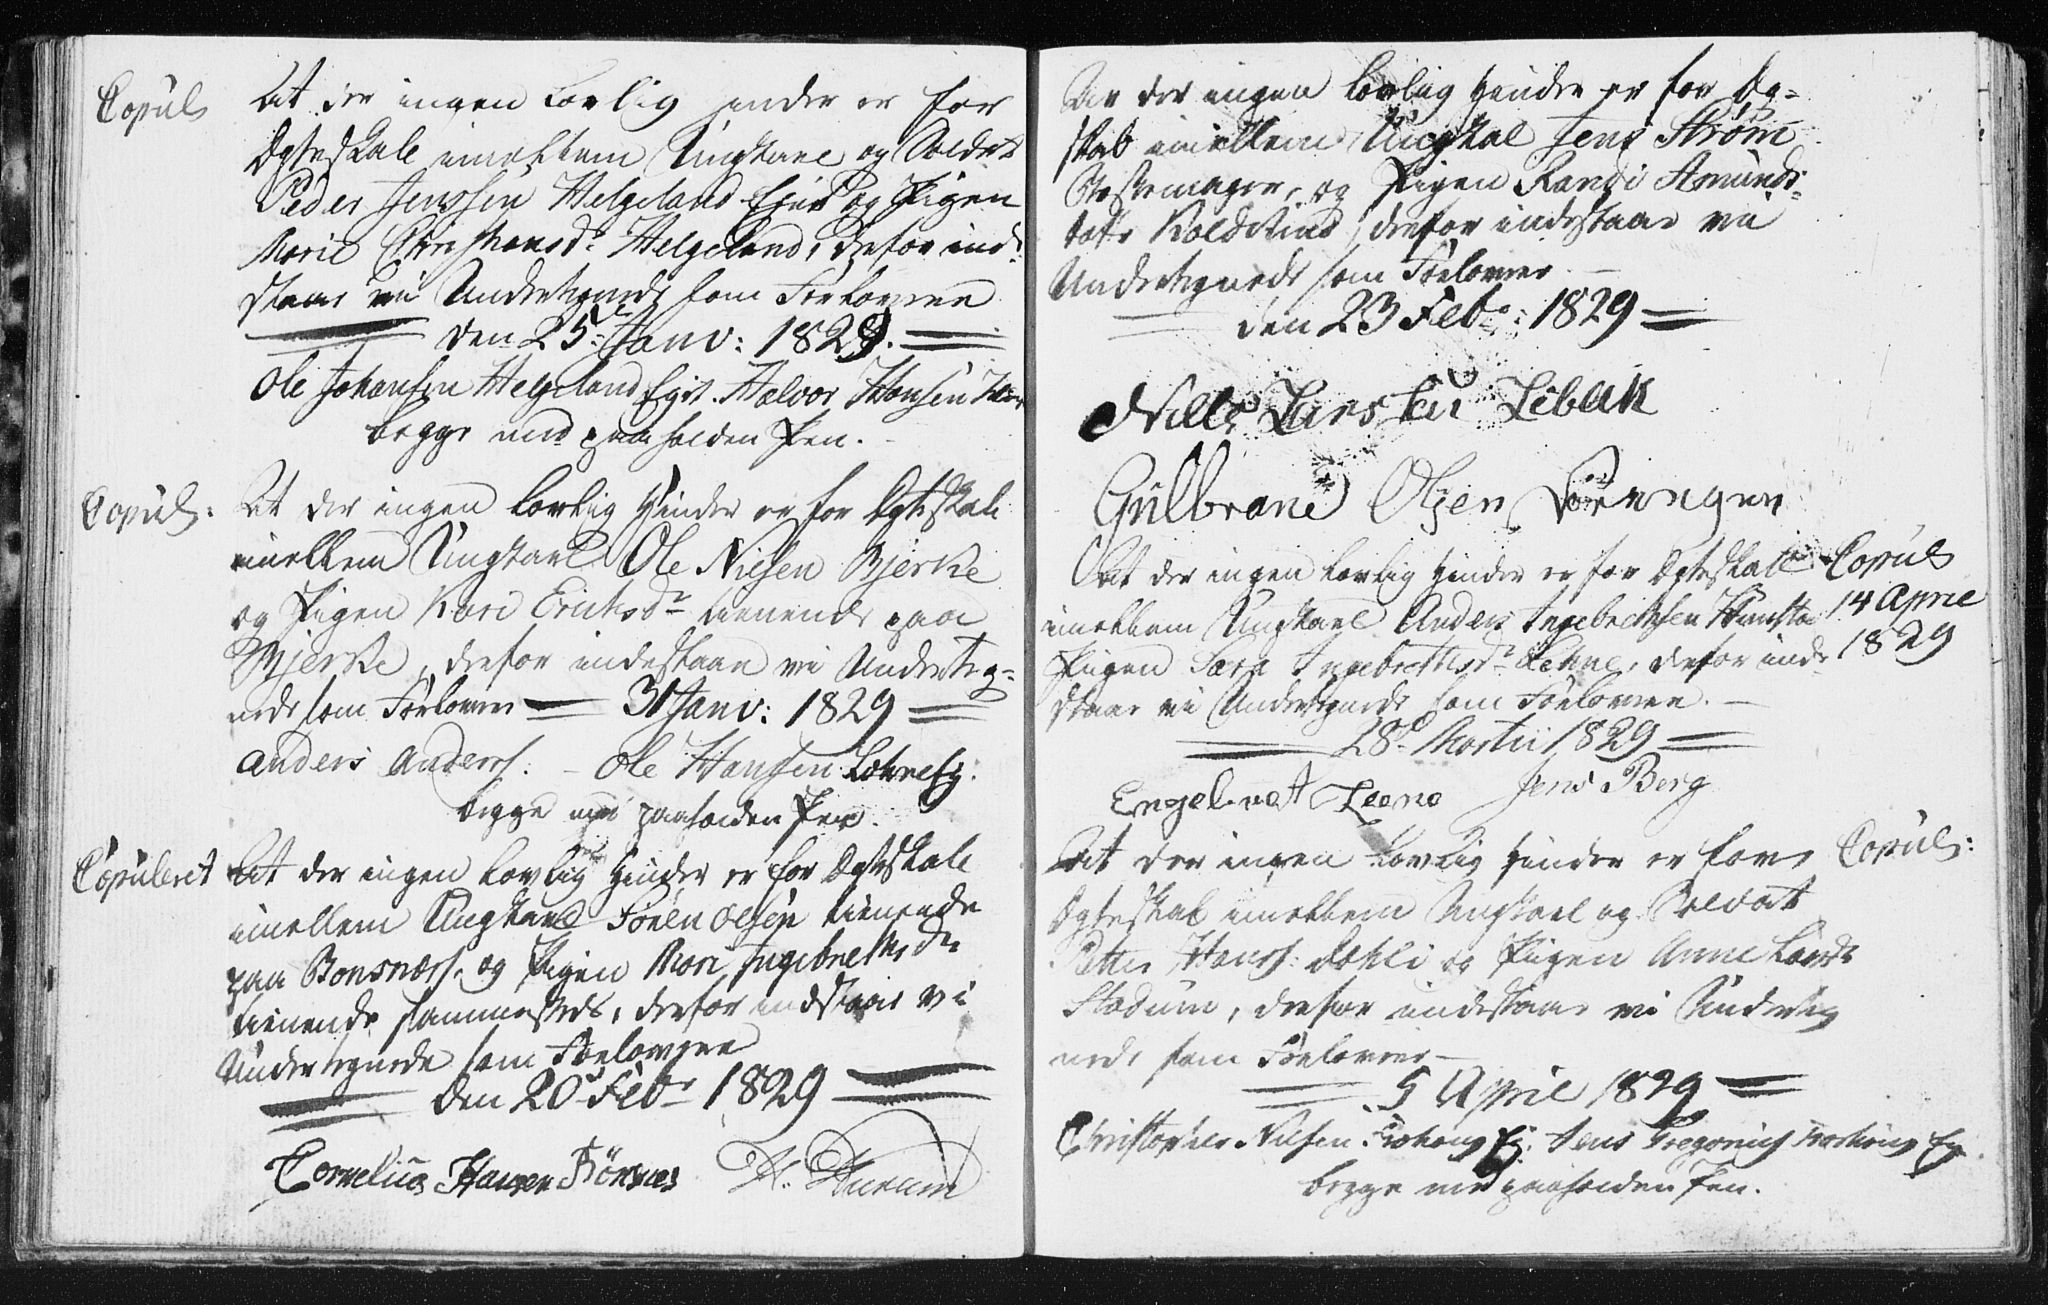 Copul: At der ingen Lovlig Hinder er for
Ægteskab imellem Ungkarl og Soldat
Peder Jenssen Helgeland Eier og Pigen
Marie Christiansd: Helgeland, derfor inde-
staar vi Undertegnede som Forlovere
den 25: Janv: 1829.
Ole Johansen Helgeland Eyer. Halvor Hansen
begge med paaholden Pen.
Copul: At der ingen Lovlig Hinder er for Ægteskab
imellem Ungkarl Ole Nielsen Bjerke
og Pigen Kari Ericksdr tienende paa
Bjerke, derfor indestaar vi Underteg-
nede som Forlovere 31 Janv: 1829
Anders Anderss: - Ole Hansen Lohne Ey:
begge med paaholden Pen.
Copuleret At der ingen Lovlig Hinder er for Ægteskab
imellem Ungkarl Søren Olsen tienende
paa Bonsnæss. og Pigen Mari Ingebrethsdr
tienende sammesteds, derfor indestaar vi
Undertegnede som Forlovere
den 20 Febr 1829
Cornelius Hansen
At der ingen Lovlig Hinder er for Æg-
skab imellem Ungkal Jens Strøm
og Pigen Randi Amunds-
datr Koldstind, derfor indestaar vi
Undertegnede som Forlovere
den 23 Febr: 1829
Niells Larssen Lebak
Gulbrand Olsen
At der ingen Lovlig Hinder er for Ægteskab Copul:
imellem Ungkarl Anders Ingebrethsen 14 April
Pigen Sara Ingebrethsdr Lehne, derfor inde- 1829
staar vi Undertegnede som Forlovere.
28d: Martii 1829
Engelbret Leene Jens Berg
At der ingen Lovlig Hinder er for Copul:
Ægteskab imellem Ungkarl og Soldat
Petter Hanss: Dahli og Pigen Anne Larsdr
Stadum, derfor indestaar vi Underteg
nede som Forlovere
5 April 1829
Christopher Nilsen Ey: Jens Gregorius Ey
begge med paaholden Pen.